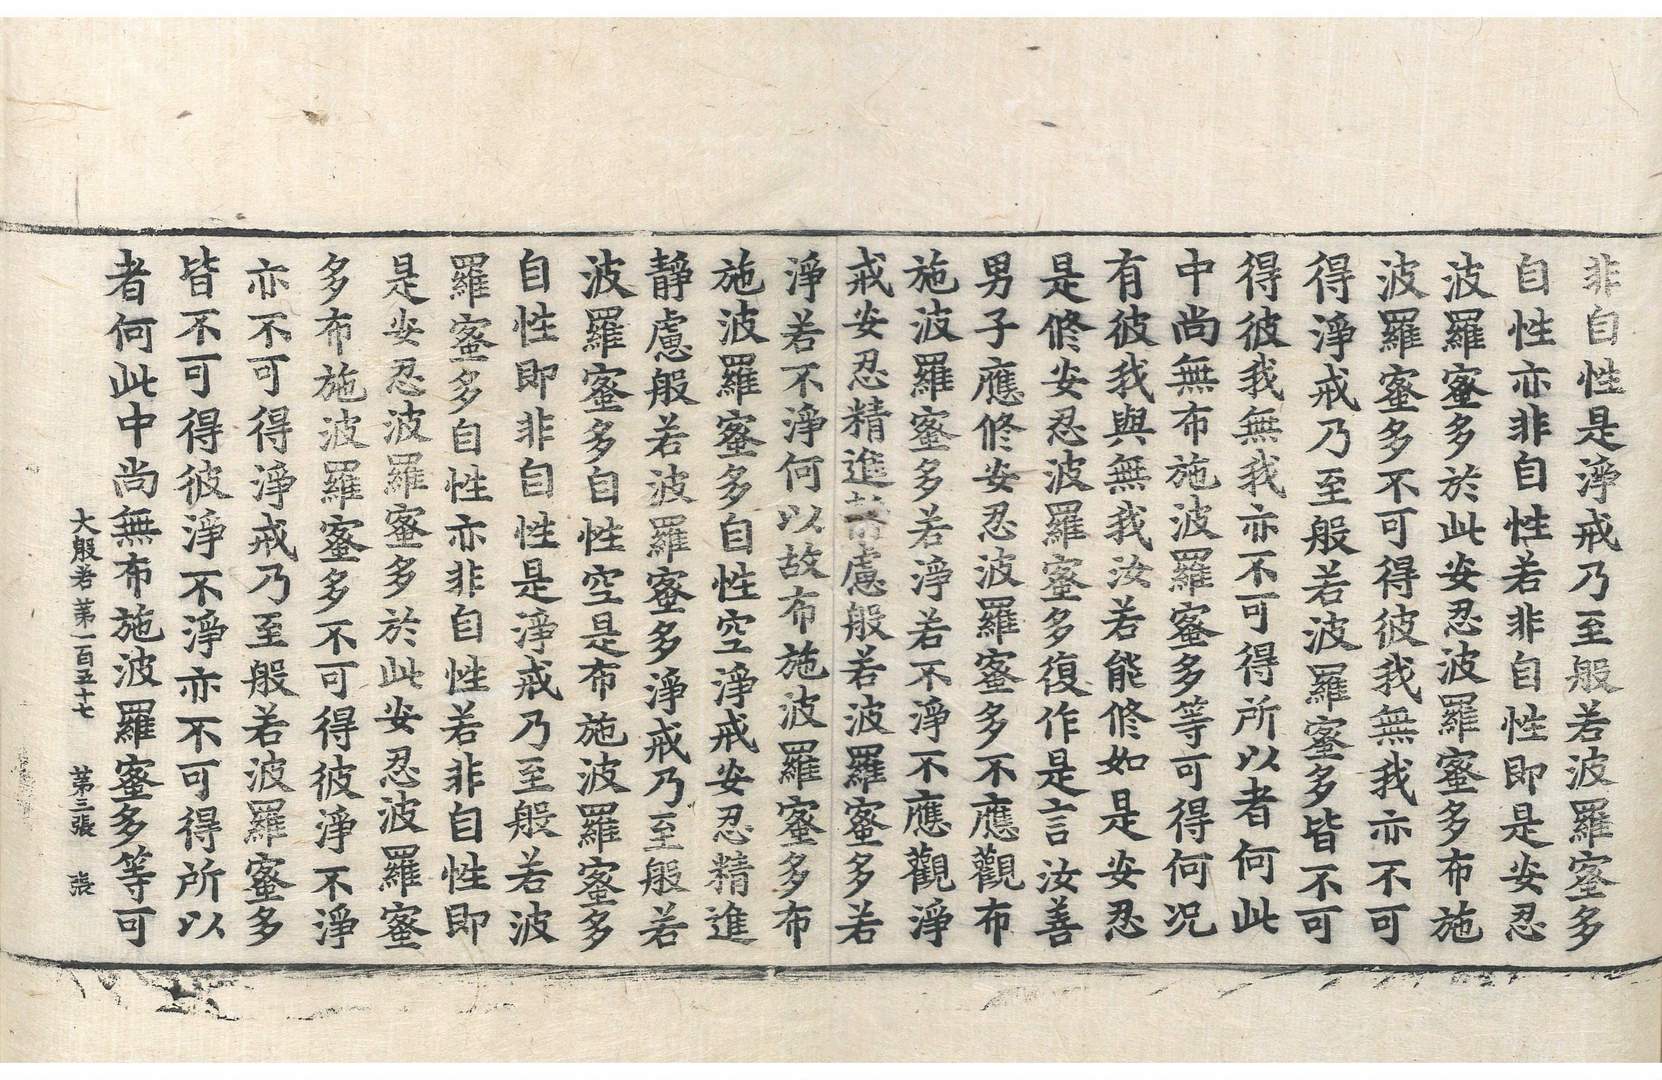 非自性是淨戒乃至般若波羅蜜多
自性亦非自性若非自性即是安忍
波羅蜜多於此安忍波羅蜜多布施
波羅蜜多不可得彼我無我亦不可
得淨戒乃至般若波羅蜜多皆不可
得彼我無我亦不可得所以者何此
中尚無布施波羅蜜多等可得何况
有彼我與無我汝若能修如是安忍
是修安忍波羅蜜多復作是言汝善
男子應修安忍波羅蜜多不應觀布
施波羅蜜多若淨若不淨不應觀淨
戒安忍精進靜慮般若波羅蜜多若
淨若不淨何以故布施波羅蜜多布
施波羅蜜多自性空淨戒安忍精進
靜慮般若波羅蜜多淨戒乃至般若
波羅蜜多自性空是布施波羅蜜多
自性即非自性是淨戒乃至般若波
羅蜜多自性亦非自性若非自性即
是安忍波羅蜜多於此安忍波羅蜜
多布施波羅蜜多不可得彼淨不淨
亦不可得淨戒乃至般若波羅蜜多
皆不可得彼淨不淨亦不可得所以
者何此中尚無布施波羅蜜多等可
大般若第一百五十七 第三張 張